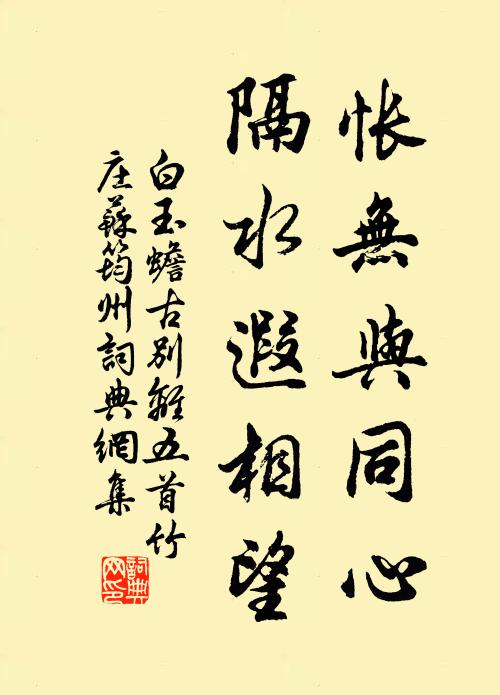 悵無與同心
隔水遐相望
白玉蟾古別離五首竹
庄蘇筠州詞典網集
詞典网印